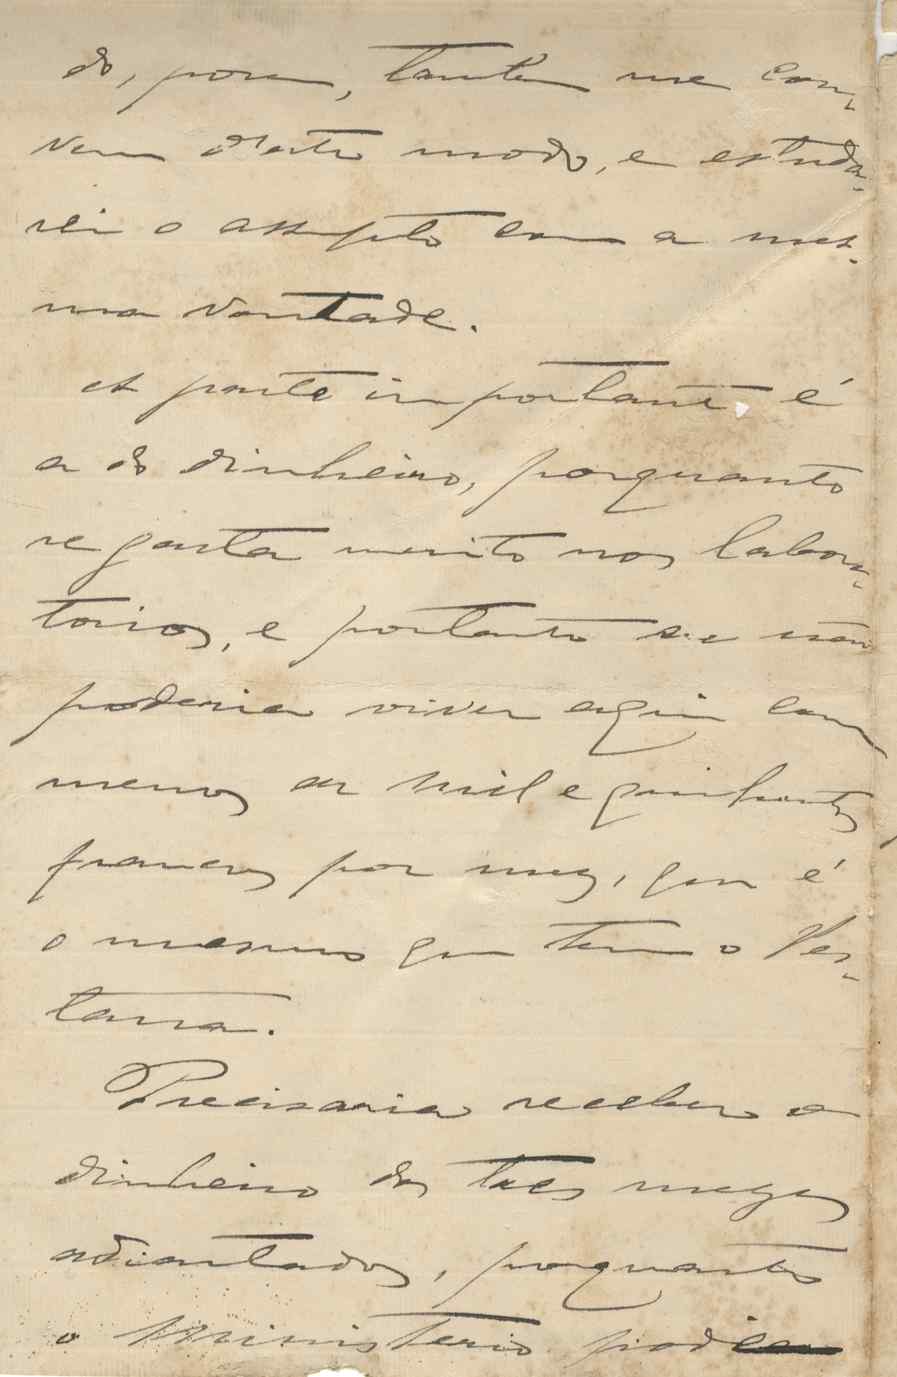 do, porem, tambem me con-
vem d'esta modo, e estuda-
rei o assupto com a mes-
ma vontade.
A parte importante é
a do dinheiro, porquanto
se gasta muito nos labora-
torios, e portanto se não
poderia viver aqui com
menos de mil e quinhentos
francos por mez, que é
o mesmo que tem o Pes-
tana.
Precisaria receber o
dinheiro dos tres mezes
adiantados, porquanto
o Ministerio pode